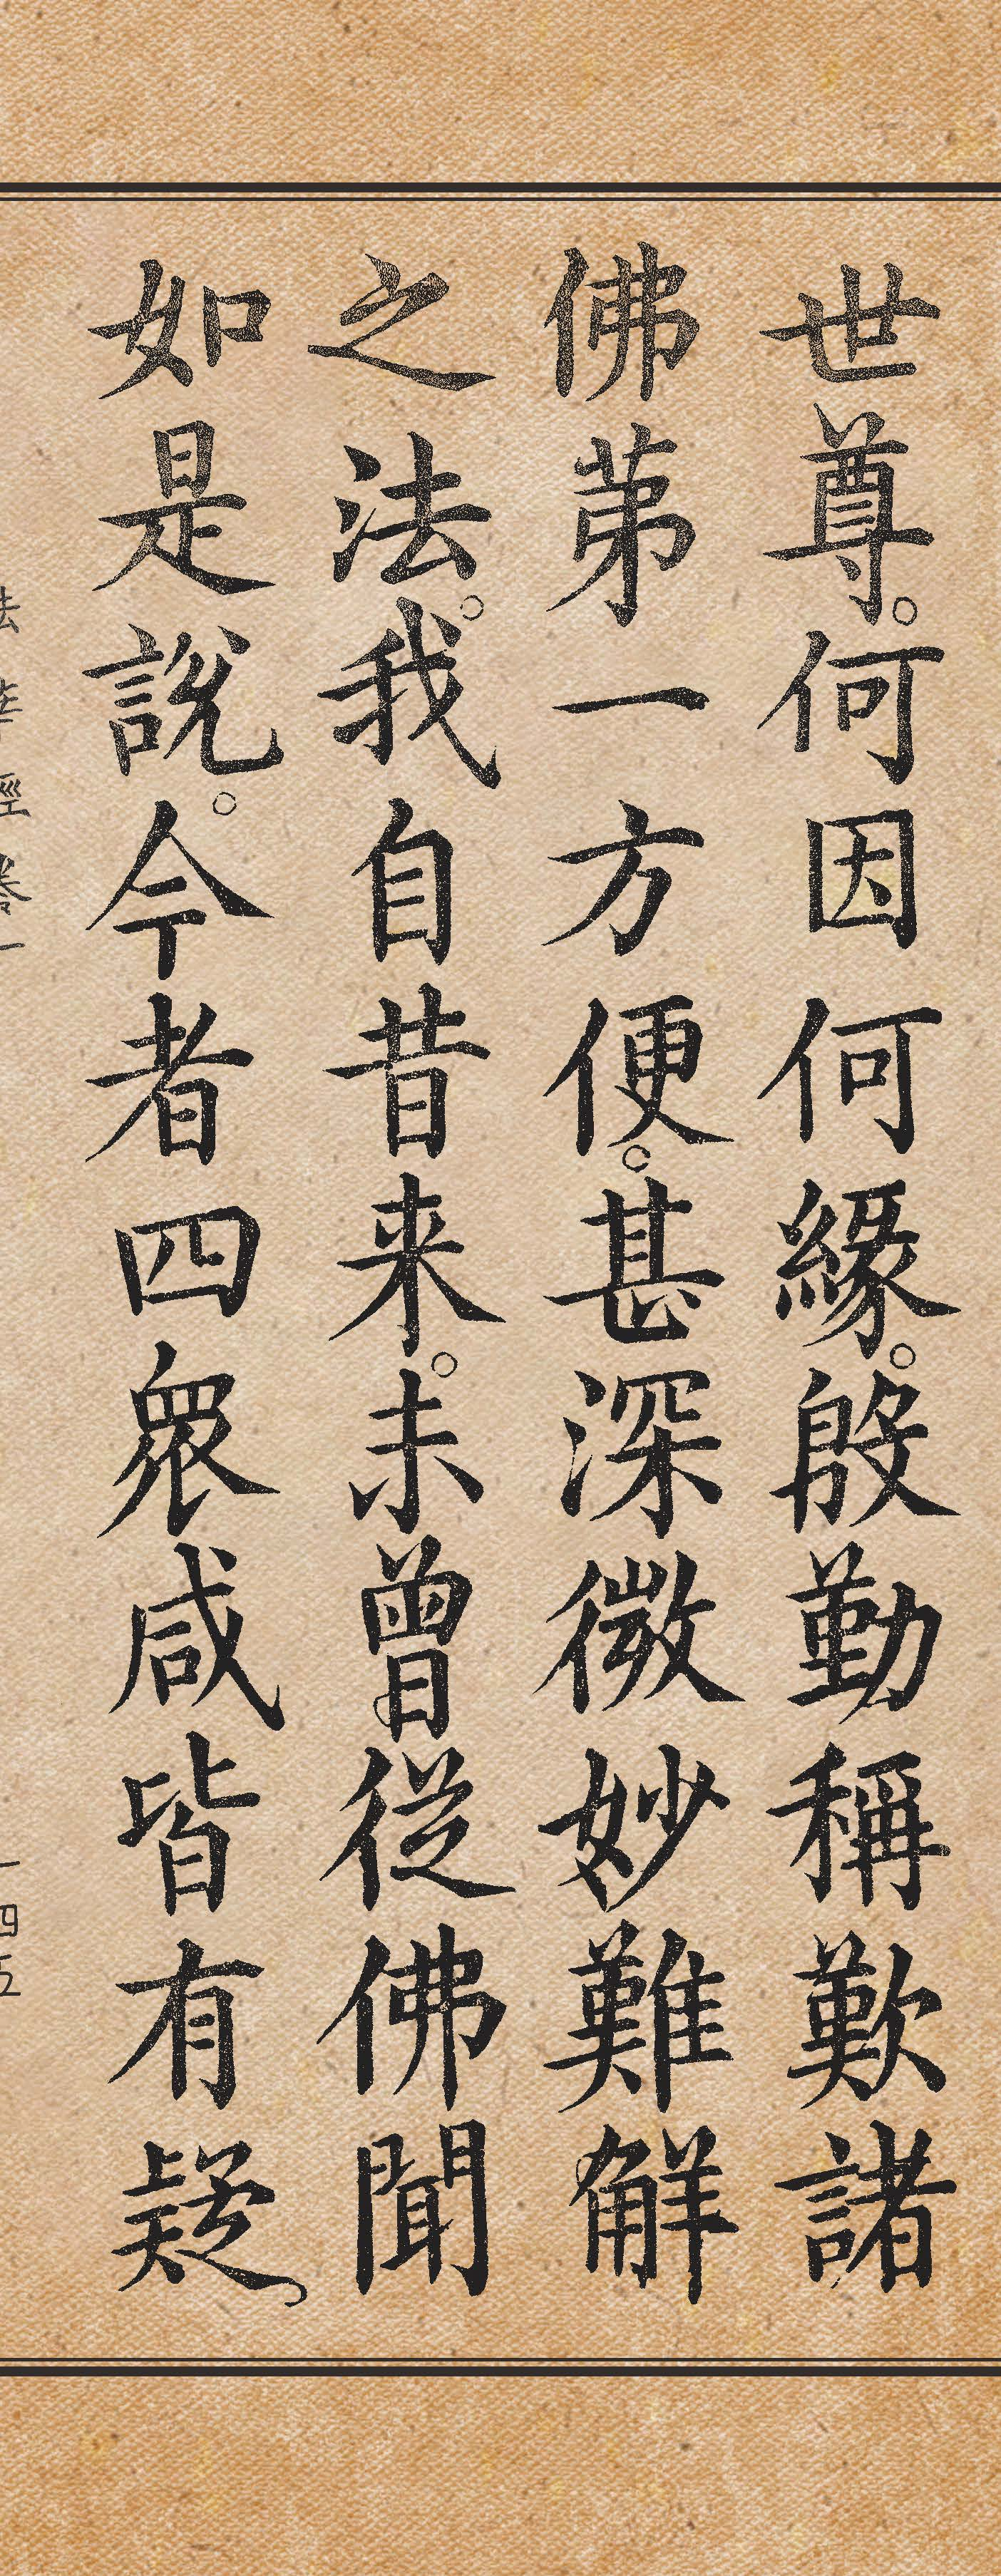 世尊。何因何緣。殷勤稱歎諸
佛苐一方便。甚深微妙難解
之法。我自昔来。未曾從佛聞
如是說。今者四眾咸皆有疑
法華經卷一
一四五